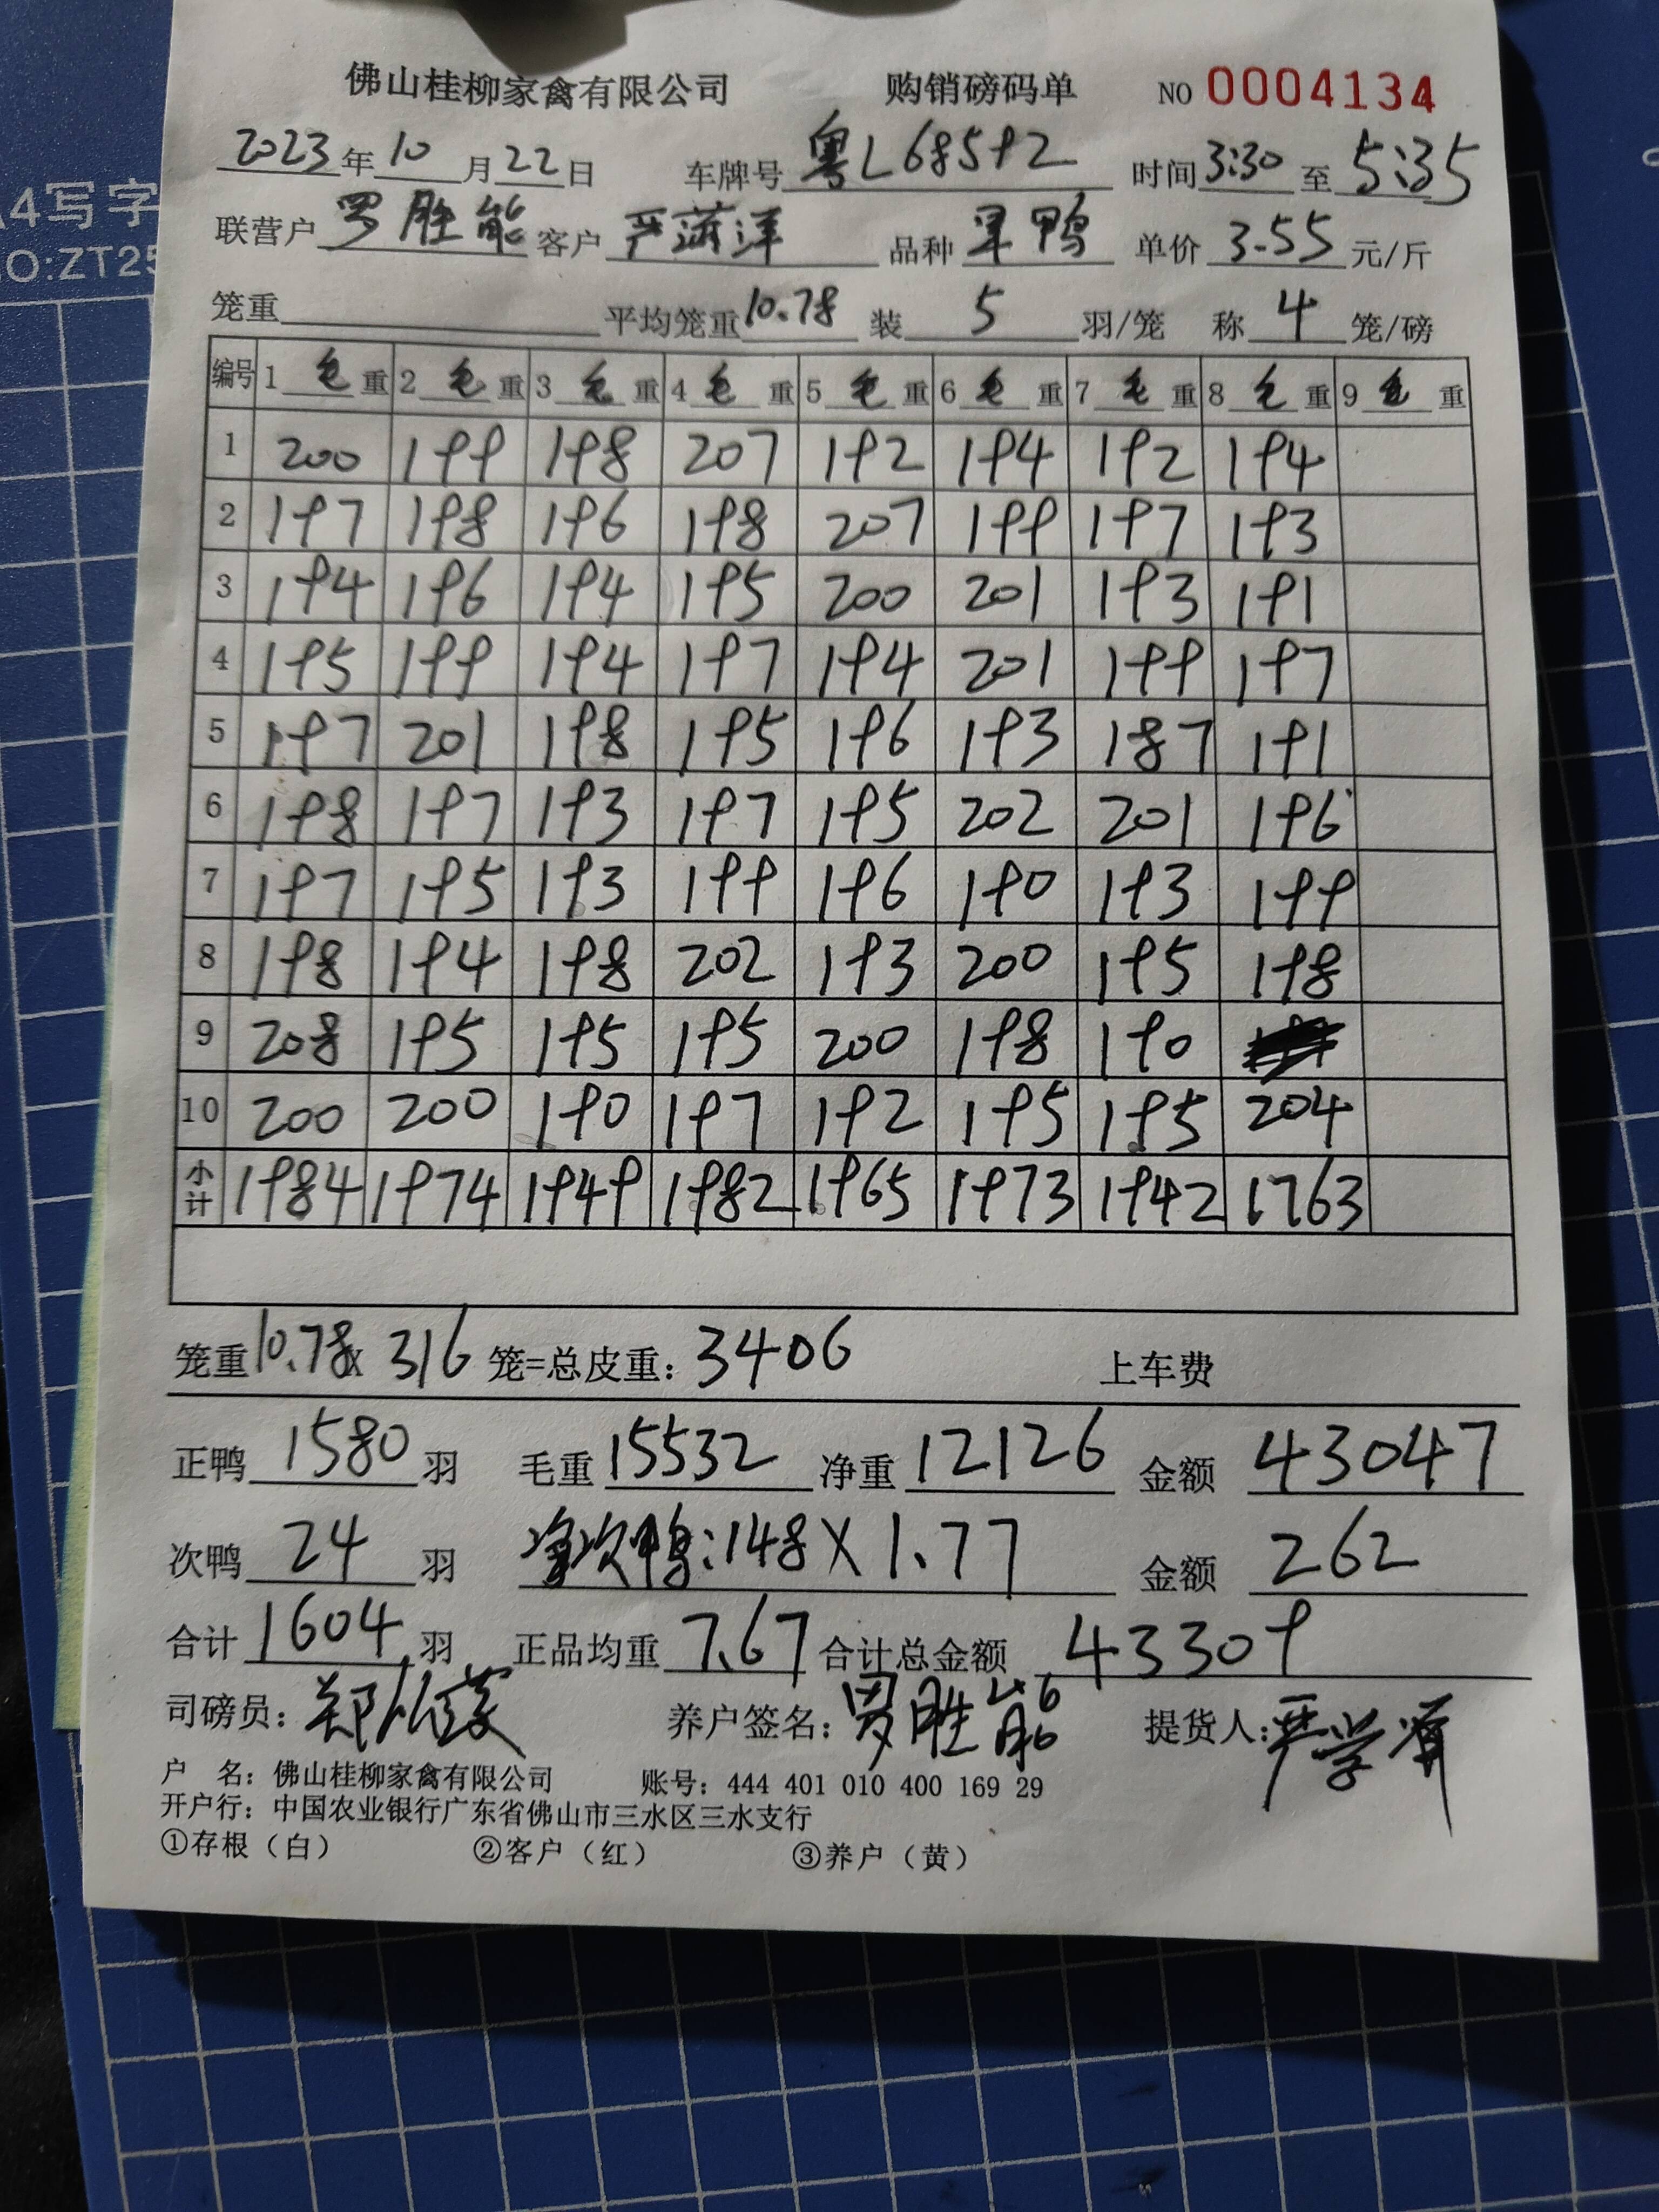 佛山桂柳家禽有限公司 购销磅码单 NO 0004134
2023年10月22日 车牌号 粤L68592 时间 3:30 至 5:35
联营户 罗胜能 客户 严 洋 品种 旱鸭 单价 3.55 元/斤
笼重 平均笼重 10.78 装 5 羽/笼 称 4 笼/磅
编号 1 毛 重 2 毛 重 3 毛 重 4 毛 重 5 毛 重 6 毛 重 7 毛 重 8 毛 重 9 毛 重
1 200 199 198 207 192 194 192 194
2 197 198 196 198 207 199 197 193
3 194 196 194 195 200 201 193 191
4 195 199 194 197 194 201 199 197
5 197 201 198 195 196 193 187 191
6 198 197 193 197 195 202 201 196
7 197 195 193 199 196 190 193 199
8 198 194 198 202 193 200 195 198
9 208 195 195 195 200 198 190
10 200 200 190 197 192 195 195 204
小计 1984 1974 1949 1982 1965 1973 1942 1763
笼重 10.78 X 316 笼=总皮重: 3406 上车费
正鸭 1580 羽 毛重 15532 净重 12126 金额 43047
次鸭 24 羽 次鸭:148X1.77 金额 262
合计 1604 羽 正品均重 7.67 合计总金额 43309
司磅员: 郑 养户签名: 罗胜能 提货人: 严学
户 名: 佛山桂柳家禽有限公司 账号: 444 401 010 400 169 29
开户行: 中国农业银行广东省佛山市三水区三水支行
①存根（白） ②客户（红） ③养户（黄）
A4写字
O:ZT25